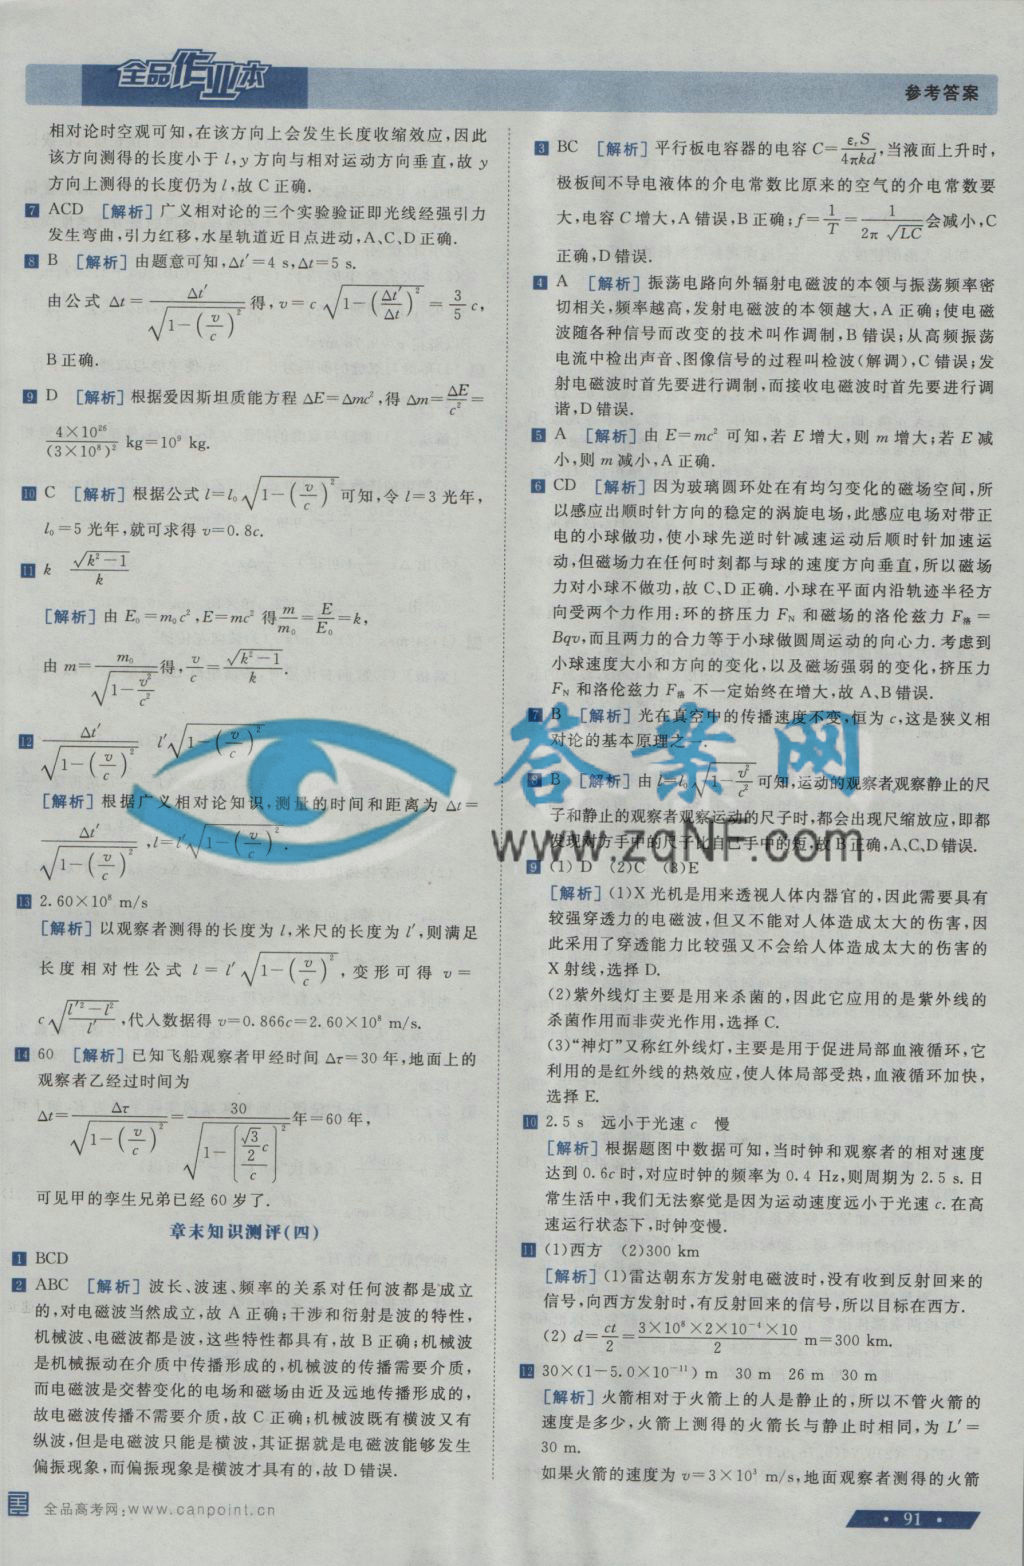 全品作业本
参考答案
相对论时空观可知,在该方向上会发生长度收缩效应,因此
该方向测得的长度小于l,y方向与相对运动方向垂直,故y
方向上测得的长度仍为l,故C正确.
7 ACD [解析]广义相对论的三个实验验证即光线经强引力
发生弯曲,引力红移,水星轨道近日点进动,A、C、D正确.
8 B [解析]由题意可知,Δt′=4 s,Δt=5 s.
由公式 Δt=Δt′/√(1-(v/c)²)得,v=c√(1-(Δt′/Δt)²)=3/5 c,
B正确.
9 D [解析]根据爱因斯坦质能方程 ΔE=Δmc²,得 Δm=ΔE/c²=
4×10²⁶/(3×10⁸)² kg=10⁹ kg.
10 C [解析]根据公式 l=l₀√(1-(v/c)²)可知,令 l=3 光年,
l₀=5 光年,就可求得 v=0.8c.
11 k √(k²-1)/k
[解析]由 E₀=m₀c²,E=mc² 得 m/m₀=E/E₀=k,
由 m=m₀/√(1-v²/c²)得,v/c=√(k²-1)/k.
12 Δt′/√(1-(v/c)²) l′√(1-(v/c)²)
[解析]根据广义相对论知识,测量的时间和距离为 Δt=
Δt′/√(1-(v/c)²),l=l′√(1-(v/c)²).
13 2.60×10⁸ m/s
[解析]以观察者测得的长度为l,米尺的长度为l′,则满足
长度相对性公式 l=l′√(1-(v/c)²),变形可得 v=
c√((l′²-l²)/l′),代入数据得 v=0.866c=2.60×10⁸ m/s.
14 60 [解析]已知飞船观察者甲经时间 Δτ=30年,地面上的
观察者乙经过时间为
Δt=Δτ/√(1-(v/c)²)=30/√(1-[(√3/2 c)/c]²)年=60年,
可见甲的孪生兄弟已经60岁了.
章末知识测评(四)
1 BCD
2 ABC [解析]波长、波速、频率的关系对任何波都是成立
的,对电磁波当然成立,故A正确;干涉和衍射是波的特性,
机械波、电磁波都是波,这些特性都具有,故B正确;机械波
是机械振动在介质中传播形成的,机械波的传播需要介质,
而电磁波是交替变化的电场和磁场由近及远地传播形成的,
故电磁波传播不需要介质,故C正确;机械波既有横波又有
纵波,但是电磁波只能是横波,其证据就是电磁波能够发生
偏振现象,而偏振现象是横波才具有的,故D错误.
3 BC [解析]平行板电容器的电容 C=εᵣS/4πkd,当液面上升时,
极板间不导电液体的介电常数比原来的空气的介电常数要
大,电容C增大,A错误,B正确;f=1/T=1/(2π√LC)会减小,C
正确,D错误.
4 A [解析]振荡电路向外辐射电磁波的本领与振荡频率密
切相关,频率越高,发射电磁波的本领越大,A正确;使电磁
波随各种信号而改变的技术叫作调制,B错误;从高频振荡
电流中检出声音、图像信号的过程叫检波(解调),C错误;发
射电磁波时首先要进行调制,而接收电磁波时首先要进行调
谐,D错误.
5 A [解析]由 E=mc² 可知,若E增大,则m增大;若E减
小,则m减小,A正确.
6 CD [解析]因为玻璃圆环处在有均匀变化的磁场空间,所
以感应出顺时针方向的稳定的涡旋电场,此感应电场对带正
电的小球做功,使小球先逆时针减速运动后顺时针加速运
动,但磁场力在任何时刻都与球的速度方向垂直,所以磁场
力对小球不做功,故C、D正确.小球在平面内沿轨迹半径方
向受两个力作用:环的挤压力 F_N 和磁场的洛伦兹力 F洛=
Bqv,而且两力的合力等于小球做圆周运动的向心力.考虑到
小球速度大小和方向的变化,以及磁场强弱的变化,挤压力
F_N 和洛伦兹力 F洛 不一定始终在增大,故A、B错误.
7 B [解析]光在真空中的传播速度不变,恒为c,这是狭义相
对论的基本原理之一.
8 B [解析]由 l=l₀√(1-v²/c²)可知,运动的观察者观察静止的尺
子和静止的观察者观察运动的尺子时,都会出现尺缩效应,即都
发现对方手中的尺子比自己手中的短,故B正确,A、C、D错误.
9 (1)D (2)C (3)E
[解析](1)X光机是用来透视人体内器官的,因此需要具有
较强穿透力的电磁波,但又不能对人体造成太大的伤害,因
此采用了穿透能力比较强又不会给人体造成太大的伤害的
X射线,选择D.
(2)紫外线灯主要是用来杀菌的,因此它应用的是紫外线的
杀菌作用而非荧光作用,选择C.
(3)“神灯”又称红外线灯,主要是用于促进局部血液循环,它
利用的是红外线的热效应,使人体局部受热,血液循环加快,
选择E.
10 2.5 s 远小于光速c 慢
[解析]根据题图中数据可知,当时钟和观察者的相对速度
达到0.6c时,对应时钟的频率为0.4 Hz,则周期为2.5 s.日
常生活中,我们无法察觉是因为运动速度远小于光速c.在高
速运行状态下,时钟变慢.
11 (1)西方 (2)300 km
[解析](1)雷达朝东方发射电磁波时,没有收到反射回来的
信号,向西方发射时,有反射回来的信号,所以目标在西方.
(2) d=ct/2=3×10⁸×2×10⁻⁴×10/2 m=300 km.
12 30×(1-5.0×10⁻¹¹) m 30 m 26 m 30 m
[解析]火箭相对于火箭上的人是静止的,所以不管火箭的
速度是多少,火箭上测得的火箭长与静止时相同,为 L′=
30 m.
如果火箭的速度为 v=3×10³ m/s,地面观察者测得的火箭
答案网
www.zqNF.com
全品高考网:www.canpoint.cn
· 91 ·